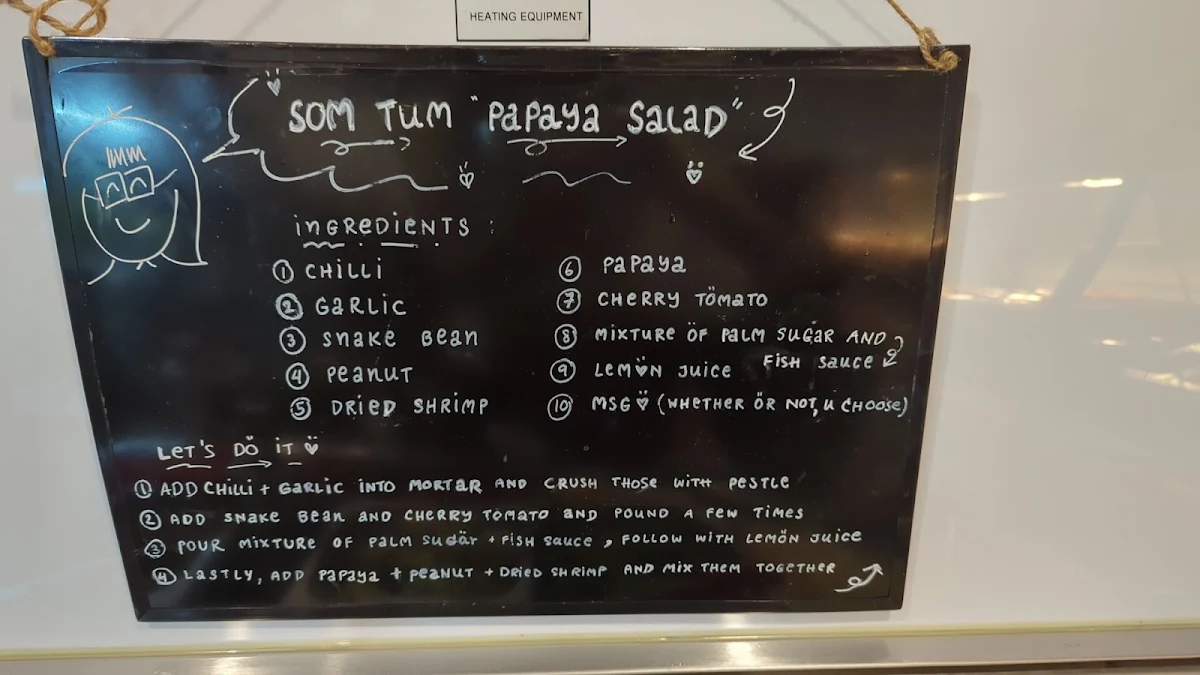 HEATING EQUIPMENT
SOM TUM "PAPAYA SALAD"
INGREDIENTS :
① CHILLI
② GARLIC
③ SNAKE BEAN
④ PEANUT
⑤ DRIED SHRIMP
⑥ PAPAYA
⑦ CHERRY TOMATO
⑧ MIXTURE OF PALM SUGAR AND
FISH SAUCE
⑨ LEMON JUICE
⑩ MSG (WHETHER OR NOT, U CHOOSE)
LET'S DO IT
① ADD CHILLI + GARLIC INTO MORTAR AND CRUSH THOSE WITH PESTLE
② ADD SNAKE BEAN AND CHERRY TOMATO AND POUND A FEW TIMES
③ POUR MIXTURE OF PALM SUGAR + FISH SAUCE, FOLLOW WITH LEMON JUICE
④ LASTLY, ADD PAPAYA + PEANUT + DRIED SHRIMP AND MIX THEM TOGETHER